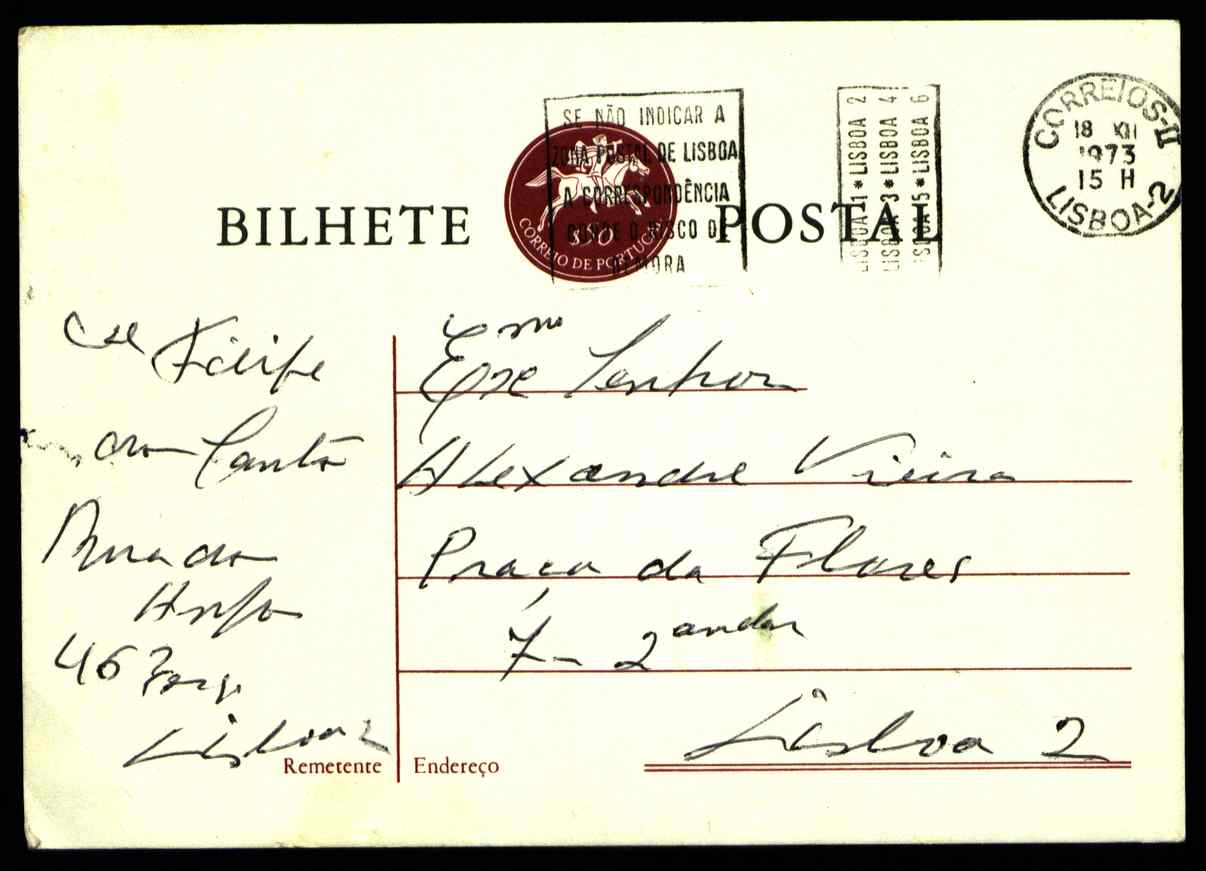 SE NÃO INDICAR A
ZONA POSTAL DE LISBOA
A CORRESPONDÊNCIA
CORRE O RISCO DE
DEMORA
LISBOA 1 * LISBOA 2
LISBOA 3 * LISBOA 4
LISBOA 5 * LISBOA 6
CORREIOS-II
18 XII
1973
15 H
LISBOA-2
BILHETE POSTAL
1$50
CORREIO DE PORTUGAL
Filipe
do Canto
Rua da
46
Lisboa 2
Remetente
Exmo Senhor
Alexandre Vieira
Praça da Flores
7- 2 andar
Lisboa 2
Endereço